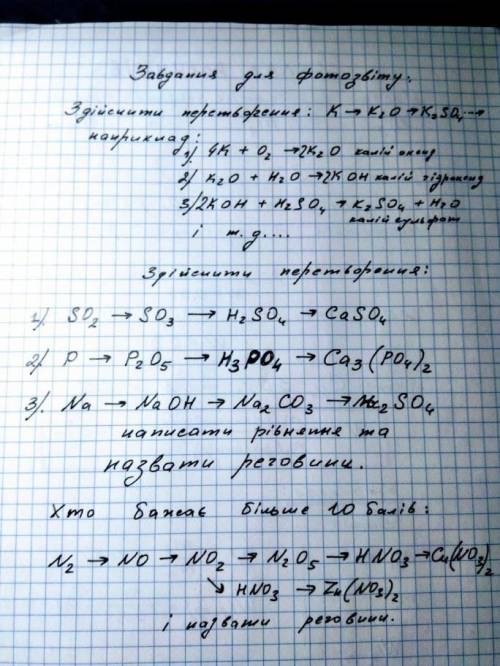 Завдання для фотозвіту.
Здійснити перетворення: K → K₂O → K₂SO₄ ...→
наприклад:
1) 4K + O₂ → 2K₂O калій оксид
2) K₂O + H₂O → 2KOH калій гідроксид
3) 2KOH + H₂SO₄ → K₂SO₄ + H₂O
калій сульфат
і т.д....
Здійснити перетворення:
1) SO₂ → SO₃ → H₂SO₄ → CaSO₄
2) P → P₂O₅ → H₃PO₄ → Ca₃(PO₄)₂
3) Na → NaOH → Na₂CO₃ → Na₂SO₄
написати рівняння та
назвати реговини.
Хто бажає більше 10 балів:
N₂ → NO → NO₂ → N₂O₅ → HNO₃ → Cu(NO₃)₂
↘ HNO₃ → Zn(NO₃)₂
і назвати реговини.